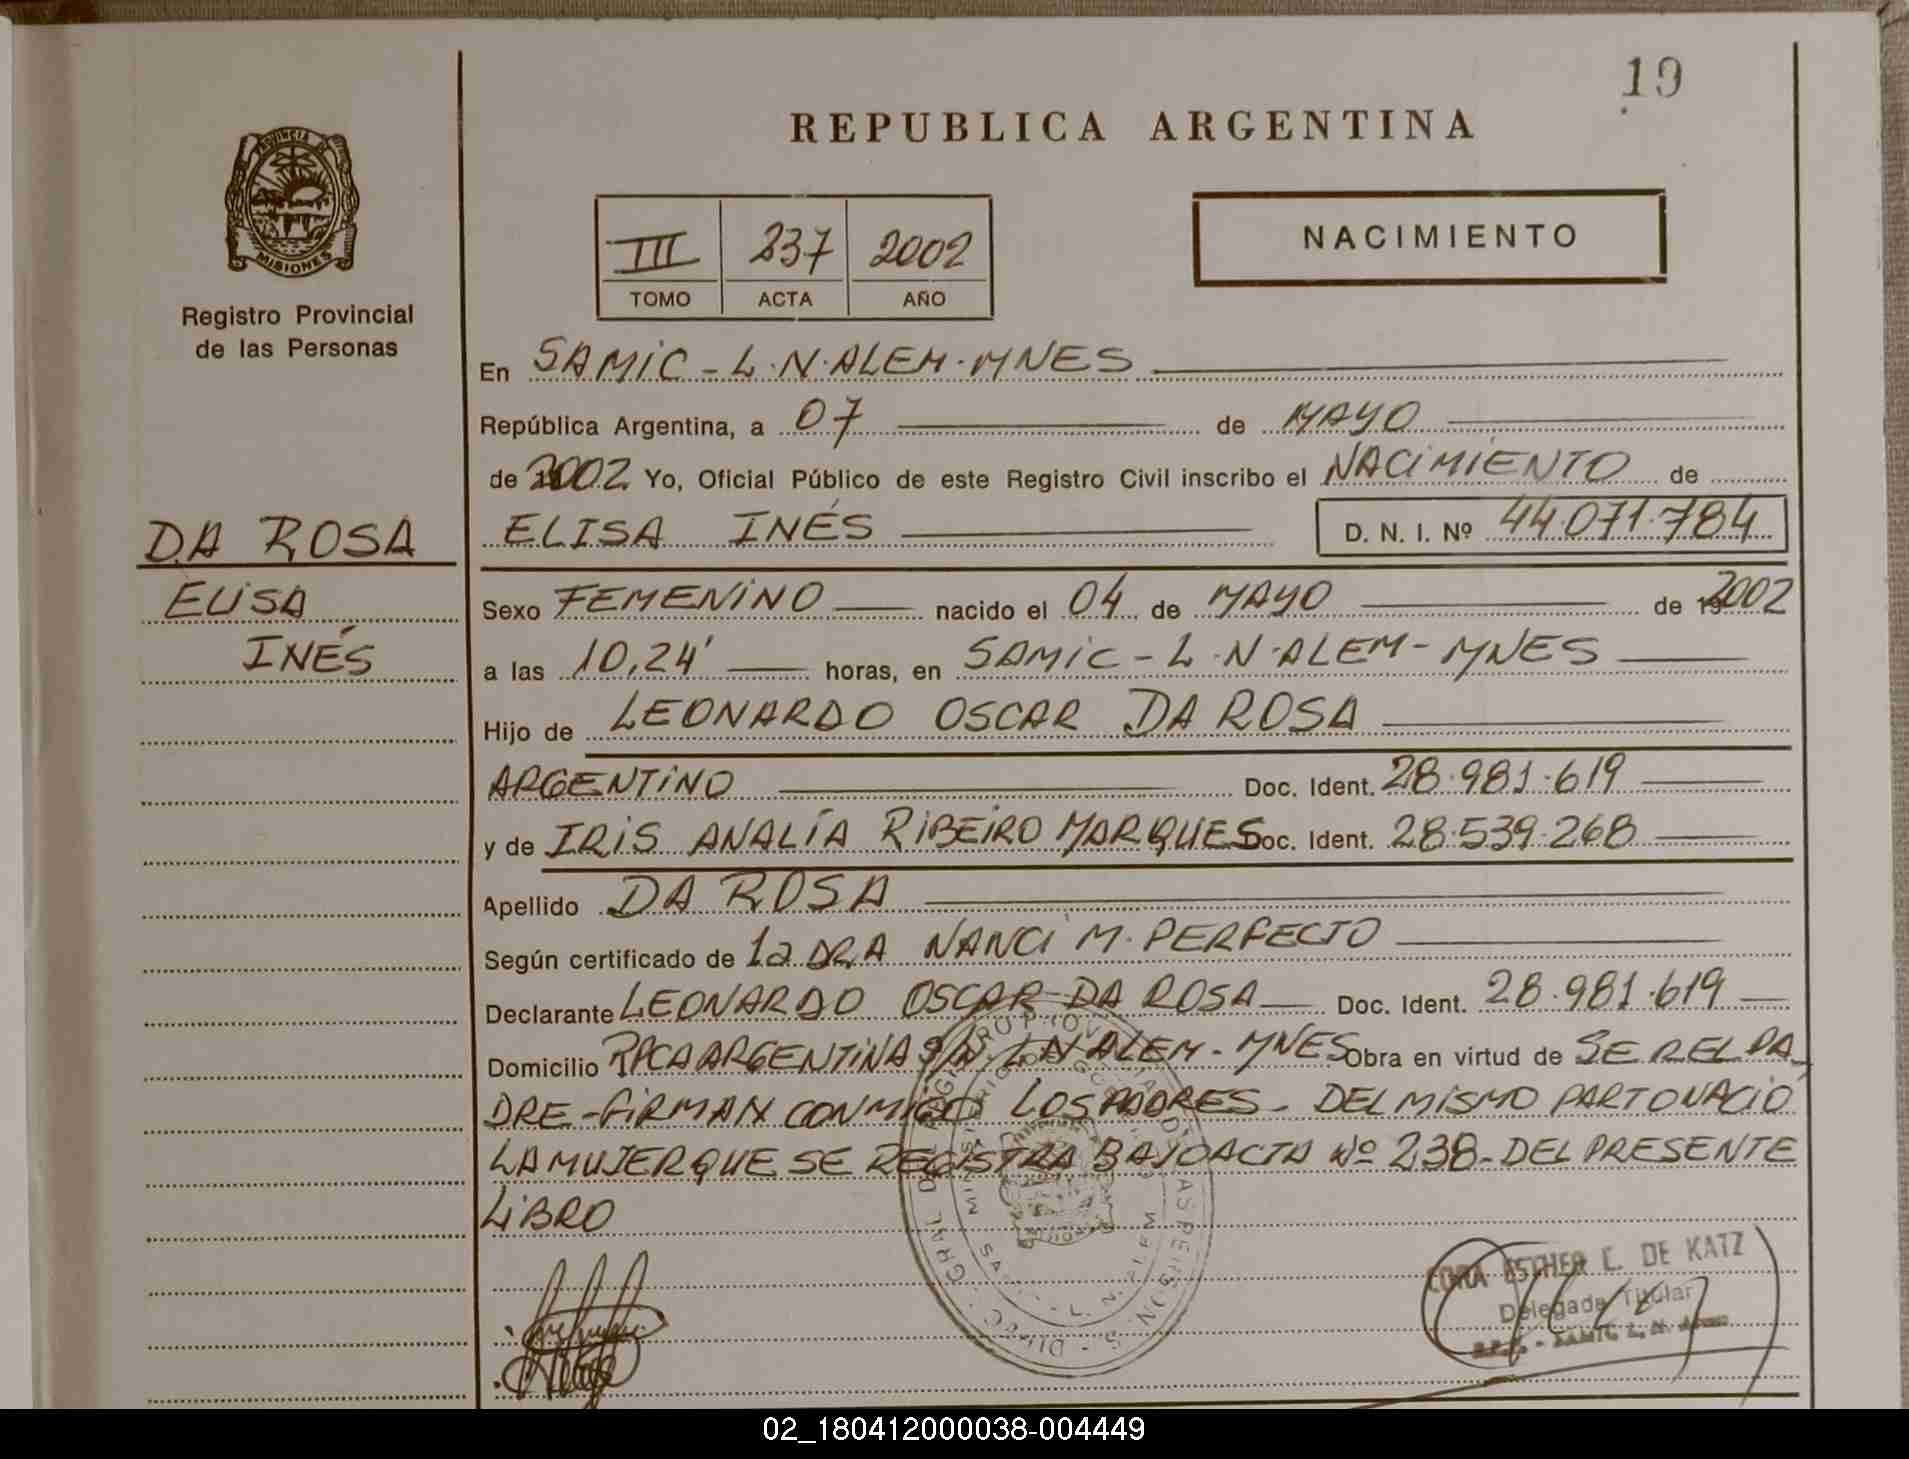 19
REPUBLICA ARGENTINA
PROVINCIA DE
MISIONES
Registro Provincial
de las Personas
III 237 2002
TOMO ACTA AÑO
NACIMIENTO
En SAMIC - L.N.ALEM.MNES
República Argentina, a 07 de MAYO
de 2002 Yo, Oficial Público de este Registro Civil inscribo el NACIMIENTO de
DA ROSA
ELISA INÉS D. N. I. Nº 44.071.784
ELISA
INÉS
Sexo FEMENINO nacido el 04 de MAYO de 2002
a las 10,24' horas, en SAMIC - L.N.ALEM - MNES
Hijo de LEONARDO OSCAR DA ROSA
ARGENTINO Doc. Ident. 28.981.619
y de IRIS ANALÍA RIBEIRO MARQUES Doc. Ident. 28.539.268
Apellido DA ROSA
Según certificado de la DRA NANCI M. PERFECTO
Declarante LEONARDO OSCAR DA ROSA Doc. Ident. 28.981.619
Domicilio RPCA ARGENTINA S/N. L N ALEM - MNES Obra en virtud de SER EL PA
DRE - FIRMAN CONMIGO LOS PADRES - DEL MISMO PARTO NACIÓ
LA MUJER QUE SE REGISTRA BAJO ACTA Nº 238 - DEL PRESENTE
LIBRO
CORA ESTHER L. DE KATZ
Delegada Titular
02_180412000038-004449